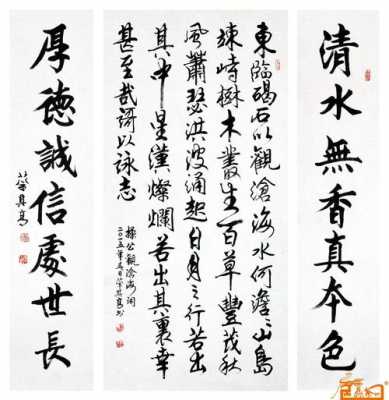 清水無香真本色
東臨碣石以觀滄海水何澹々山島
竦峙樹木叢生百草豐茂秋
風蕭瑟洪波涌起日月之行若出
其中星漢燦爛若出其裏幸
甚至哉謌以詠志
操公觀滄海詞
二〇一五年
厚德誠信處世長